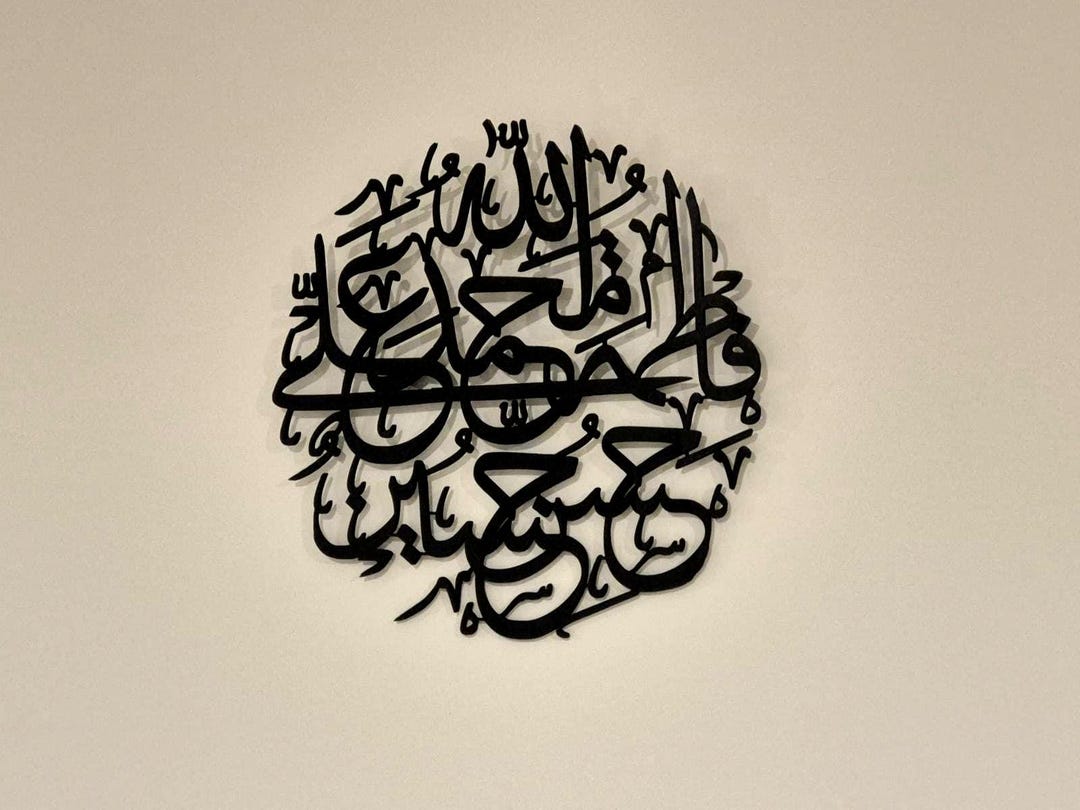 الله
محمد علي
فاطمة
حسن حسين